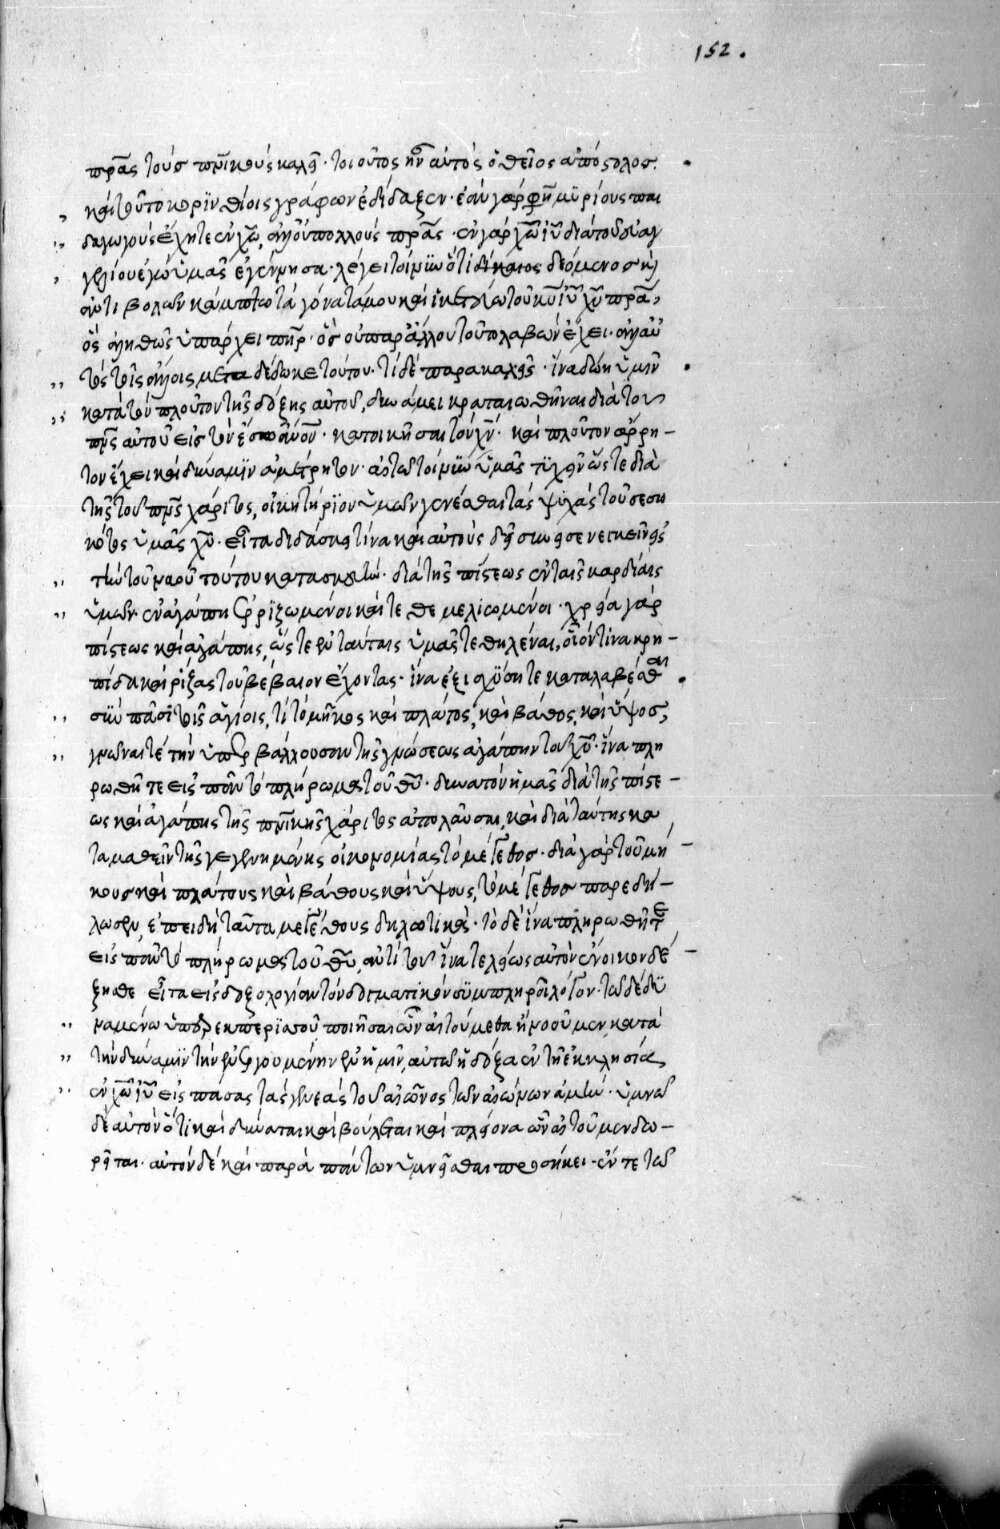 152.
πρ̅ας τοὺς πν̅ικοὺς καλεῖ· τοιοῦτος ἦν αὐτὸς ὁ θεῖος ἀπόστολος·
καὶ τοῦτο κορινθίοις γράφων ἐδίδαξεν· ἐὰν γάρ φησι μυρίους παι
δαγωγοὺς ἔχητε ἐν χ̅ω, ἀλλ' οὐ πολλοὺς πρ̅ας· ἐν γὰρ χ̅ω ι̅υ διὰ τοῦ εὐαγ
γελίου ἐγὼ ὑμᾶς ἐγέννησα· λέγει τοίνυν ὅτι δικαίως δεόμενος καὶ
ἀντιβολῶν κάμπτω τὰ γόνατά μου καὶ ἱκετεύω τοῦ κ̅υ ι̅υ χ̅υ πρ̅α,
ὃς ἀληθῶς ὑπάρχει πη̅ρ· ὃς οὐ παρ' ἄλλου τοῦτο λαβὼν ἔχει· ἀλλ' αὐ
τὸς τοῖς ἄλλοις μεταδέδωκε τούτου· τί δὲ παρακαλεῖς· ἵνα δώη ὑμῖν
κατὰ τὸν πλοῦτον τῆς δόξης αὐτοῦ, δυνάμει κραταιωθῆναι διὰ τοῦ
πν̅ς αὐτοῦ εἰς τὸν ἔσω ἄν̅ον· κατοικῆσαι τὸν χ̅ν· καὶ πλοῦτον ἄρρη-
τον ἔχει καὶ δύναμιν ἀμέτρητον· αἰτῶ τοίνυν ὑμᾶς τυχεῖν ὥστε διὰ
τῆς τοῦ πν̅ς χάριτος, οἰκητήριον ὑμῶν γενέσθαι τὰς ψυχὰς τοῦ σεσω
κότος ὑμᾶς χ̅υ· εἶτα διδάσκει τίνα καὶ αὐτοὺς δεῖ συνεισενεγκεῖν εἰς
τὴν τοῦ ναοῦ τούτου κατασκευήν· διὰ τῆς πίστεως ἐν ταῖς καρδίαις
ὑμῶν· ἐν ἀγάπῃ ἐρριζωμένοι καὶ τεθεμελιωμένοι· χρεία γὰρ
πίστεως καὶ ἀγάπης, ὥστε ἐν ταύταις ὑμᾶς τεθηλέναι, οἷόν τινα κρη-
πῖδα καὶ ρίζας τοῦ βέβαιον ἔχοντας· ἵνα ἐξισχύσητε καταλαβέσθαι
σὺν πᾶσι τοῖς ἁγίοις, τί τὸ μῆκος καὶ πλάτος, καὶ βάθος, καὶ ὕψος,
γνῶναί τε τὴν ὑπερβάλλουσαν τῆς γνώσεως ἀγάπην τοῦ χ̅υ· ἵνα πλη
ρωθῆτε εἰς πᾶν τὸ πλήρωμα τοῦ θ̅υ· δυνατὸν ἡμᾶς διὰ τῆς πίστε-
ως καὶ ἀγάπης τῆς πν̅ικῆς χάριτος ἀπολαῦσαι, καὶ διὰ ταύτης κα
ταμαθεῖν τῆς γεγενημένης οἰκονομίας τὸ μέγεθος· διὰ γὰρ τοῦ μή-
κους καὶ πλάτους καὶ βάθους καὶ ὕψους, τὸ μέγεθος παρεδή-
λωσεν, ἐπειδὴ ταῦτα μεγέθους δηλωτικά· τὸ δὲ ἵνα πληρωθῆτε
εἰς πᾶν τὸ πλήρωμα τοῦ θ̅υ, ἀντὶ τοῦ ἵνα τελείως αὐτὸν ἔνοικον δέ-
ξησθε εἶτα εἰς δοξολογίαν τὸν δογματικὸν συμπληροῖ λόγον· τῶ δὲ δυ
ναμένω ὑπὲρ ἐκπερισσοῦ ποιῆσαι ὧν αἰτούμεθα ἢ νοοῦμεν, κατὰ
τὴν δύναμιν τὴν ἐνεργουμένην ἐν ἡμῖν, αὐτῶ ἡ δόξα ἐν τῇ ἐκκλησίᾳ,
ἐν χ̅ω ι̅υ εἰς πάσας τὰς γενεὰς τοῦ αἰῶνος τῶν αἰώνων ἀμήν· ὑμνῶ
δὲ αὐτὸν ὅτι καὶ δύναται καὶ βούλεται καὶ πλείονα ὧν αἰτοῦμεν δω-
ρεῖται· αὐτὸν δὲ καὶ παρὰ πάντων ὑμνεῖσθαι προσήκει· ἔν τε τῶ